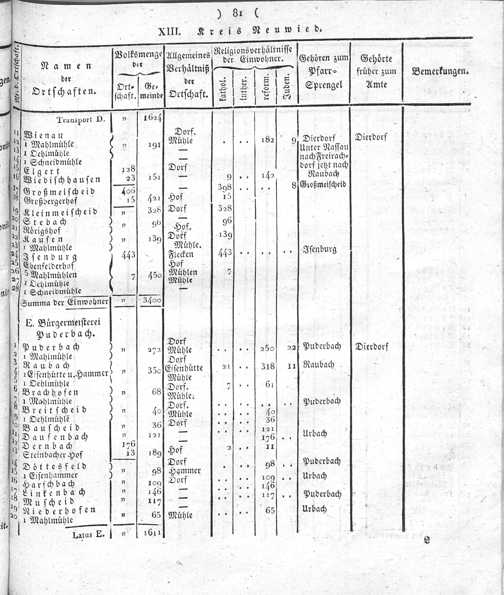 ) 81 (
XIII. Kreis Neuwied.
Namen der Ortschaften.
Volksmenge der
Ortschaft.
Gemeinde
Allgemeines Verhältniß der Ortschaft.
Religionsverhältnisse der Einwohner.
kathol.
luther.
reform.
Juden.
Gehören zum Pfarr-Sprengel
Gehörte früher zum Amte
Bemerkungen.
Transport D. " 1624
11 Wienau " 191 Dorf. 182 9 Dierdorf Dierdorf
12 1 Mahlmühle Mühle Unter Nassau
13 1 Oehlmühle — nach Freirach-
14 1 Schneidmühle — dorf jetzt nach
15 Elgert 128 Dorf Raubach
16 Wiedischhausen 23 151 — 9 142
17 Großmeischeid 406 — 398 8 Großmeischeid
18 Großbergerhof 15 421 Hof 15
19 Kleinmeischeid " 328 Dorf 328
20 Stebach " 96 — 96
21 Rörigshof Hof.
22 Kausen " 139 Dorf 139
1 Mahlmühle Mühle.
Isenburg 443 Flecken 443 Isenburg
Ebenfelderhof Hof
5 Mahlmühlen 7 450 Mühlen 7
1 Oehlmühle Mühle
1 Schneidmühle —
Summa der Einwohner " 3400
E. Bürgermeisterei Puderbach.
1 Puderbach " 272 Dorf 250 22 Puderbach Dierdorf
2 1 Mahlmühle Mühle
3 Raubach " 350 Dorf 21 318 11 Raubach
4 1 Eisenhütte u. Hammer Eisenhütte
5 1 Oehlmühle Mühle
6 Brachhofen " 68 Dorf 7 61
7 1 Mahlmühle Mühle.
8 Breitscheid " 40 Dorf. 40 Puderbach
9 1 Oehlmühle Mühle
10 Bauscheid " 36 Dorf 36
11 Daufenbach " 121 — 121
12 Dernbach 176 — 176 Urbach
13 Steinbacher Hof 13 189 Hof 2 11
14 Döttesfeld " 98 Dorf 98 Puderbach
15 1 Eisenhammer Hammer
16 Harschbach " 109 Dorf 109 Urbach
17 Linkenbach " 146 — 146
18 Muscheid " 117 — 117 Puderbach
19 Niederhofen " 65 — 65 Urbach
20 1 Mahlmühle Mühle
Latus E. " 1611